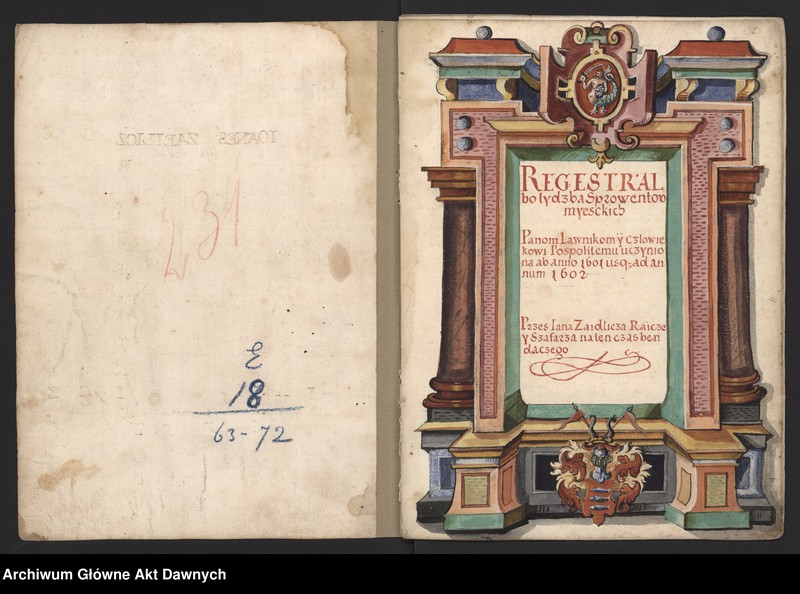 IOANES ZAETLICZ
231
E
18
63-72
REGESTRAL
bo lydzba Sprowentow
myesckich
Panom Lawnikom ÿ Człowie
kowi Pospolitemu uczynio
na ab anno 1601 usq; ad an
num 1602
Przes Iana Zaidlicza Raicze
y Szafarza na ten czas ben
daczego
Archiwum Główne Akt Dawnych